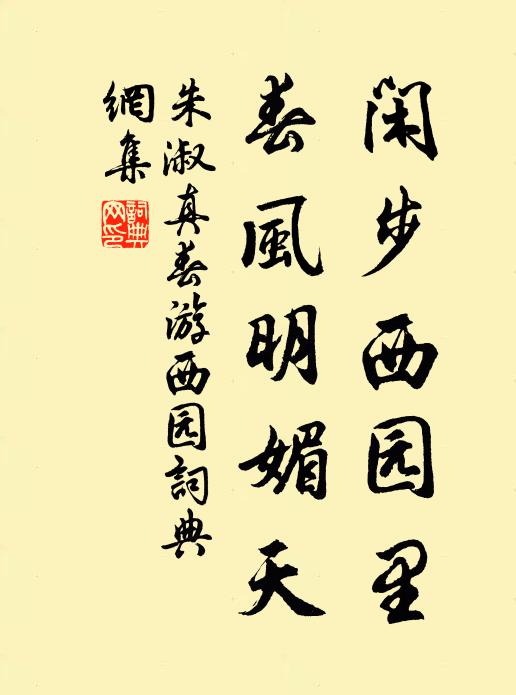 闲步西园里
春風明媚天
朱淑真春游西园詞典
網集
詞典網印